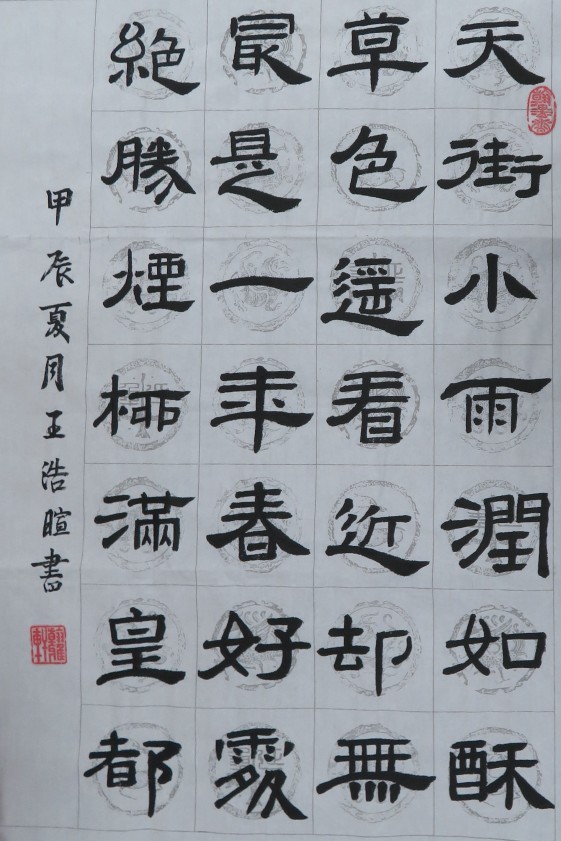 天街小雨潤如酥
草色遥看近却無
最是一年春好處
絶勝煙柳滿皇都
甲辰夏月王浩暄書